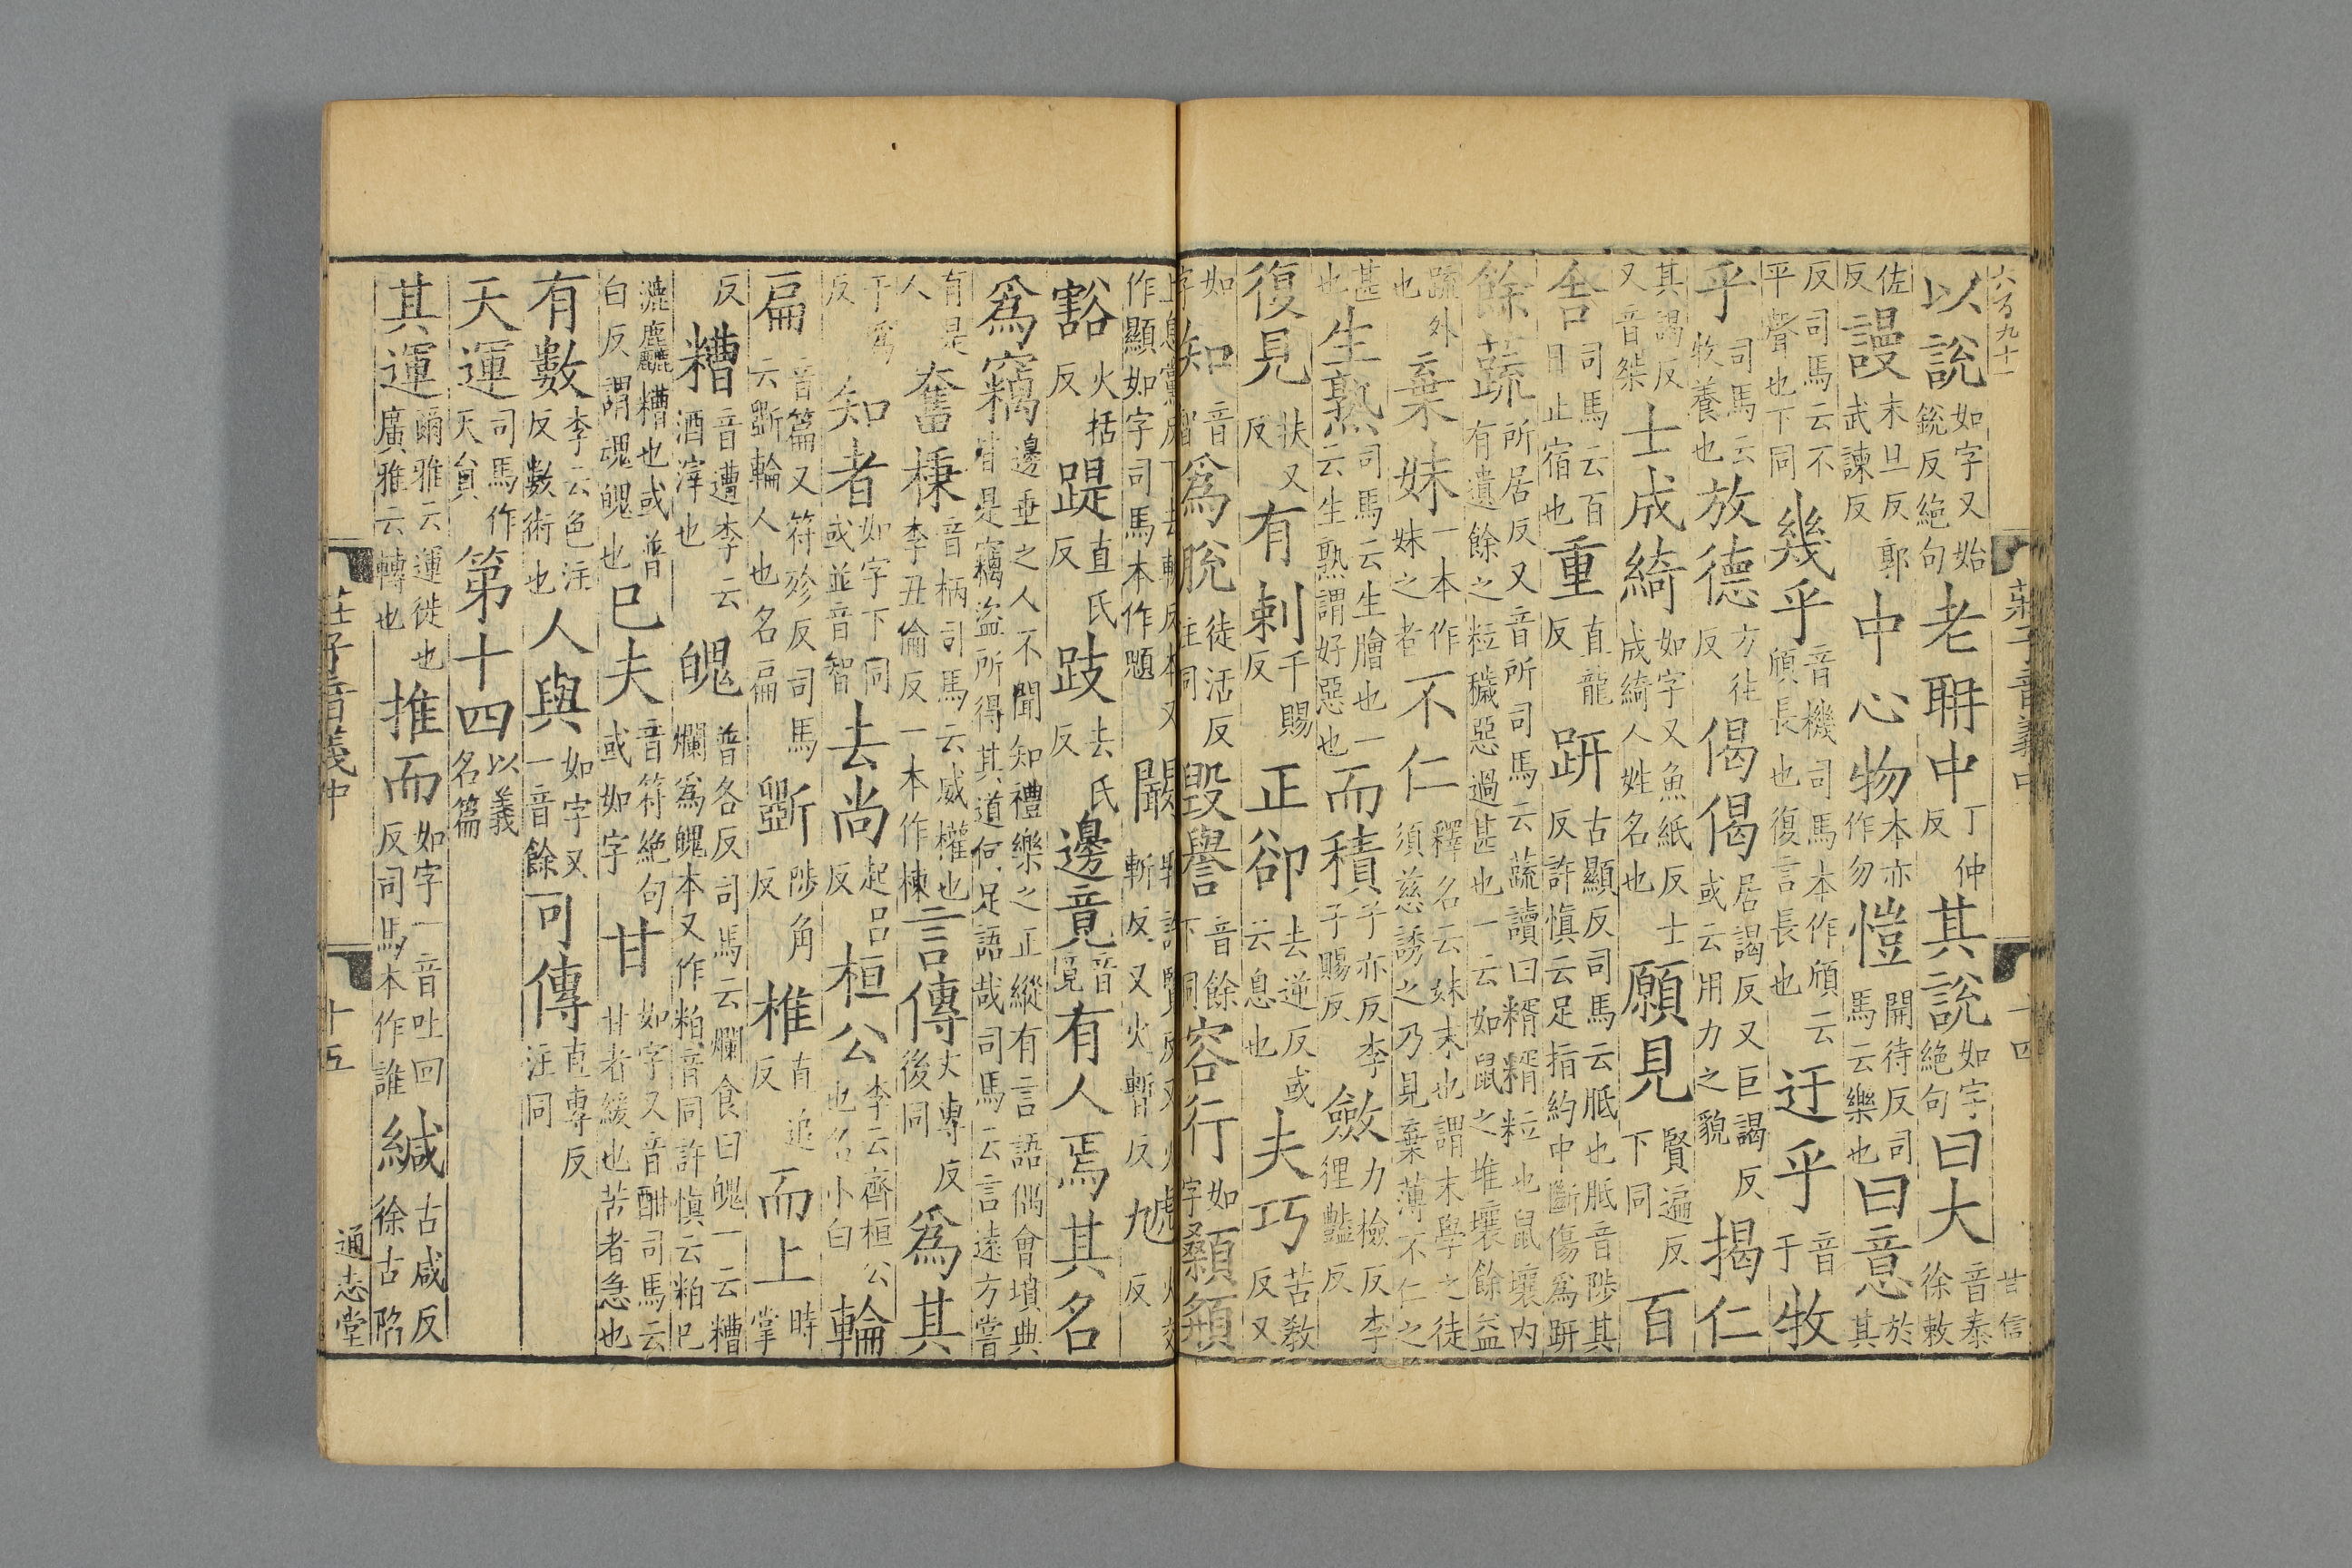 六万九十一 莊子音義中 十四 甘信
以說如字又始銳反絶句老聃中丁仲反其說如字絶句曰大音泰徐敕
佐反謾末旦反郭武諫反中心物本亦作勿愷開待反司馬云樂也曰意於其
反司馬云不平聲也下同幾乎音機司馬本作頎云頎長也復言長也迂乎音于牧
乎司馬云牧養也放德方往反偈偈居謁反又巨謁反或云用力之貌揭仁
其謁反又音桀士成綺如字又魚紙反士成綺人姓名也願見賢遍反下同百
舍司馬云百日止宿也重直龍反趼古顯反司馬云胝也胝音陟其反許愼云足指約中斷傷爲趼
餘蔬所居反又音所司馬云蔬讀曰糈糈粒也鼠壤內有遺餘之粒穢惡過甚也一云如鼠之堆壤餘益
蔬外也棄妹一本作妹之者不仁釋名云妹末也謂末學之徒須慈誘之乃見棄薄不仁之
甚也生熟司馬云生膾也一云生熟謂好惡也而積子亦反李子賜反斂力檢反李狸豔反
復見扶又反有刺千賜反正卻去逆反或云息也夫巧苦教反又
如字知音智爲脫徒活反注同毀譽音餘下同容行如字顙頯
上息黨反下去軌反本又作顯如字司馬本作䫥闞郭許覽反又火斬反又火暫反虓火交反
豁火括反踶直氏反跂去氏反邊竟音境有人焉其名
爲竊邊垂之人不聞知禮樂之正縱有言語偶會墳典皆是竊盜所得其道何足語哉司馬云言遠方嘗
有是人奮棅音柄司馬云威權也李丑倫反一本作棟言傳丈專反後同爲其
于爲反知者如字下同或並音智去尚起呂反桓公李云齊桓公也名小白輪
扁音篇又符殄反司馬云斵輪人也名扁斵陟角反椎直追反而上時掌
反糟音遭李云酒滓也魄普各反司馬云爛食曰魄一云糟爛爲魄本又作粕音同許愼云粕已
漉麤糟也或普白反謂魂魄也已夫音符絶句或如字甘如字又音酣司馬云甘者緩也苦者急也
有數李云色注反數術也人與如字又一音餘可傳直專反注同
天運司馬作天員第十四以義名篇
其運爾雅云運徙也廣雅云轉也推而如字一音吐回反司馬本作誰緘古咸反徐古陷
莊子音義中 十五 通志堂